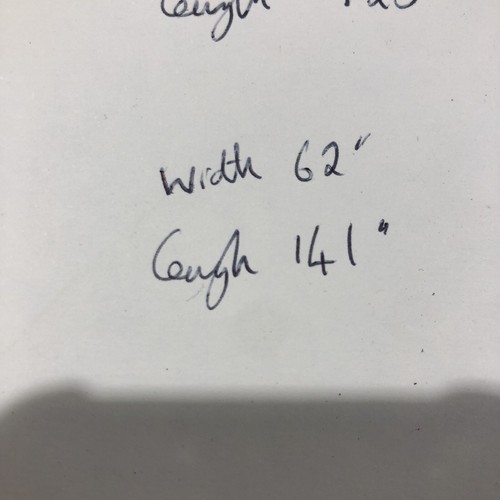 Lengh
Width 62"
Lengh 141"